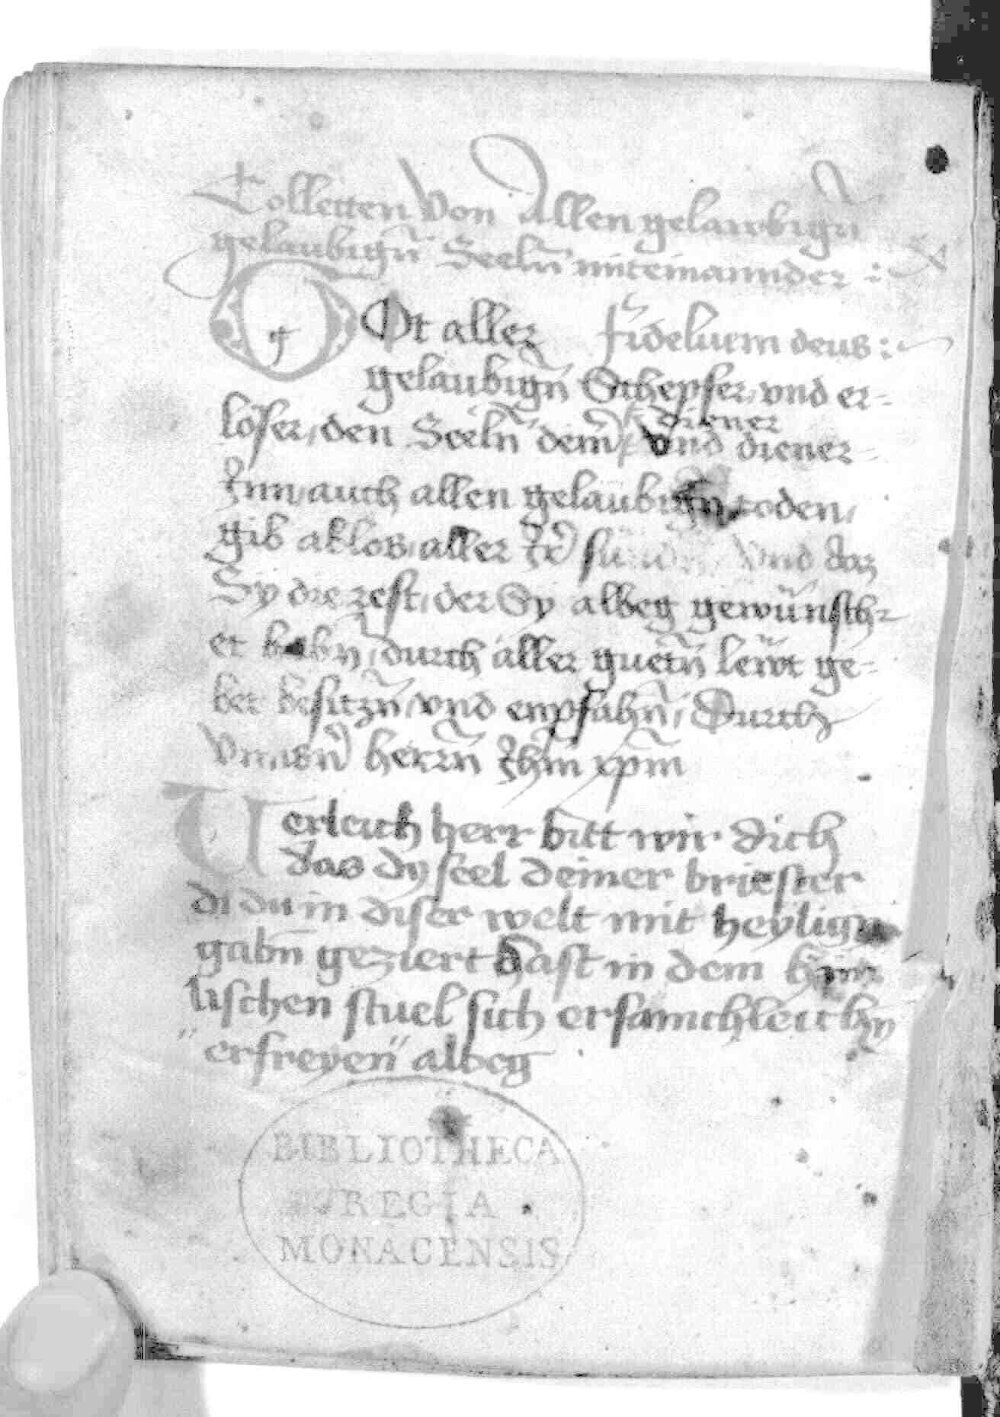 Collecten Von Allen gelawbign̄
gelaubign̄ Seeln̄ miteinannder :
GOt aller Fidelium deus :
gelaubign̄ Schepfer, vnd er-
löser, den Seeln̄ dein̄ diener
Vnd diener
Inn, auch allen gelaubign̄ toden,
gib ablos, aller Ir̄ sünden Vnd daz
Sy die rest, der Sy albeg gewünsch-
et habn̄, durch aller guetn̄ lewt ge-
bet besitzn̄, vnd enpfahn̄, Durch
Vnnsn̄ herrn̄ Ihm̄ xpm̄
Verleich herr bitt wir dich
das dy seel deiner briester
di du in diser welt mit heylign
gabn̄ geziert hast in dem himi
lischen stuel sich ersamchleichn̄
erfreyen albeg
BIBLIOTHECA
REGIA
MONACENSIS